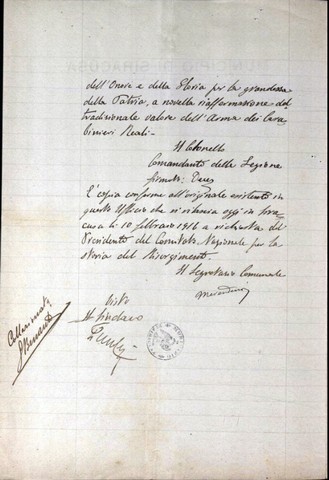 MUNICIPIO DI SIRACUSA
dell'Onore e della Gloria per la grandezza
della Patria, a novella riaffermazione del
tradizionale valore dell'Arma dei Cara
binieri Reali -
Il Colonnello
Comandante della Legione
firmato:
È copia conforme all'originale esistente in
questo Ufficio che si rilascia oggi in Sira
cusa li 10 febbraio 1916 a richiesta del
Presidente del Comitato Nazionale per la
storia del Risorgimento.
Il Segretario Comunale
Visto
Il Sindaco